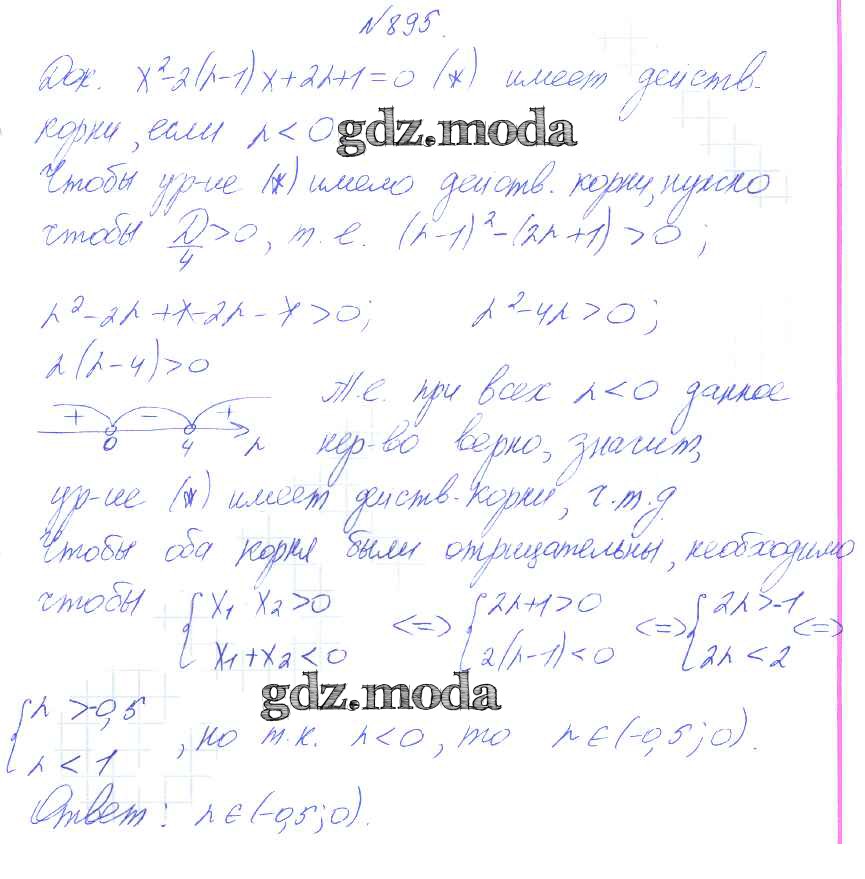 №895.
Док. x²-2(n-1)x+2n+1=0 (*) имеет действ.
корни, если n<0
gdz.moda
Чтобы ур-ие (*) имело действ. корни, нужно
чтобы D/4>0, т.е. (n-1)²-(2n+1)>0;
n²-2n+1-2n-1>0; n²-4n>0;
n(n-4)>0
+ - +
0 4 n
Т.е. при всех n<0 данное
нер-во верно, значит,
ур-ие (*) имеет действ. корни, ч.т.д
Чтобы оба корня были отрицательны, необходимо
чтобы { x₁ x₂>0 <=> { 2n+1>0 <=> { 2n>-1 <=>
x₁+x₂<0 2(n-1)<0 2n<2
gdz.moda
{ n>-0,5
n<1 , но т.к. n<0, то n∈(-0,5;0).
Ответ: n∈(-0,5;0).